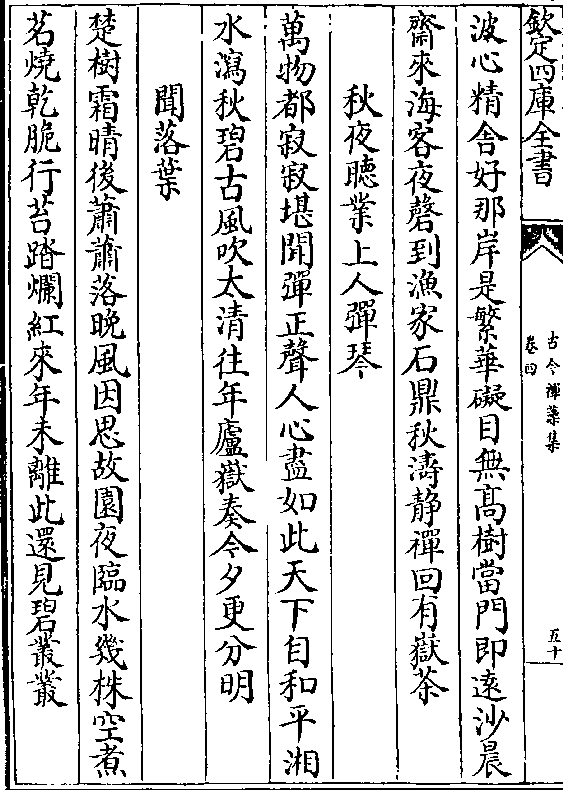 欽定四庫全書
古今禪藻集
卷四
五十
波心精舍好那岸是繁華礙目無髙樹當門即逺沙晨
齋來海客夜磬到漁家石鼎秋濤静禪回有嶽茶
秋夜聽業上人彈琴
萬物都寂寂堪聞彈正聲人心盡如此天下自和平湘
水瀉秋碧古風吹太清往年廬嶽奏今夕更分明
聞落葉
楚樹霜晴後蕭蕭落晚風因思故園夜臨水幾株空煮
茗燒乾脆行苔踏爛紅來年未離此還見碧叢叢